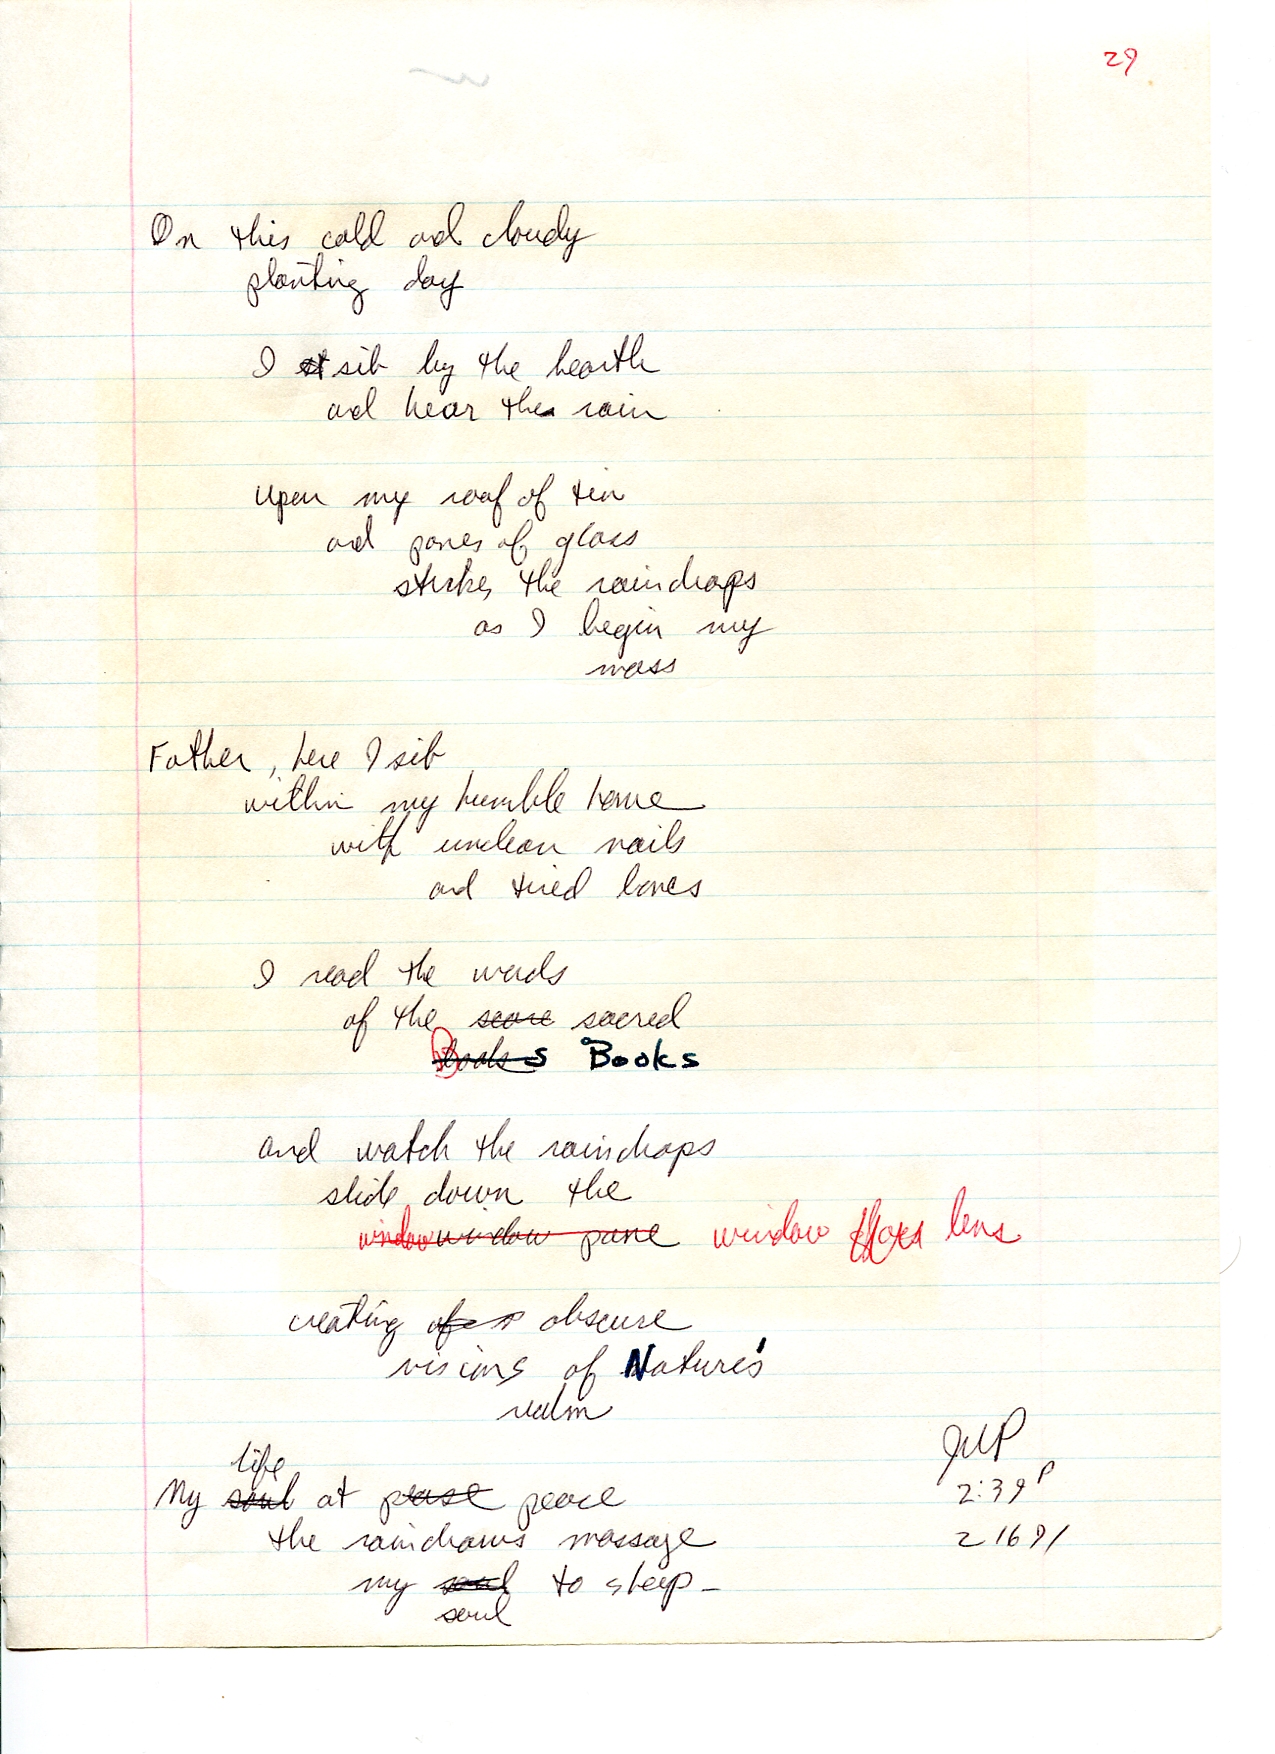 29
On this cold and cloudy
planting day
I sit by the hearth
and hear the rain
upon my roof of tin
and panes of glass
strikes the raindrops
as I begin my
mass
Father, here I sit
within my humble home
with unclean nails
and tired bones
I read the words
of the score sacred
Books Books
and watch the raindrops
slide down the
window window pane window lens
creating obscure
visions of Nature's
realm
life
My soul at pease peace
the raindrops massage
my soul to sleep-
soul
JMP
2:39 P
2 16 91